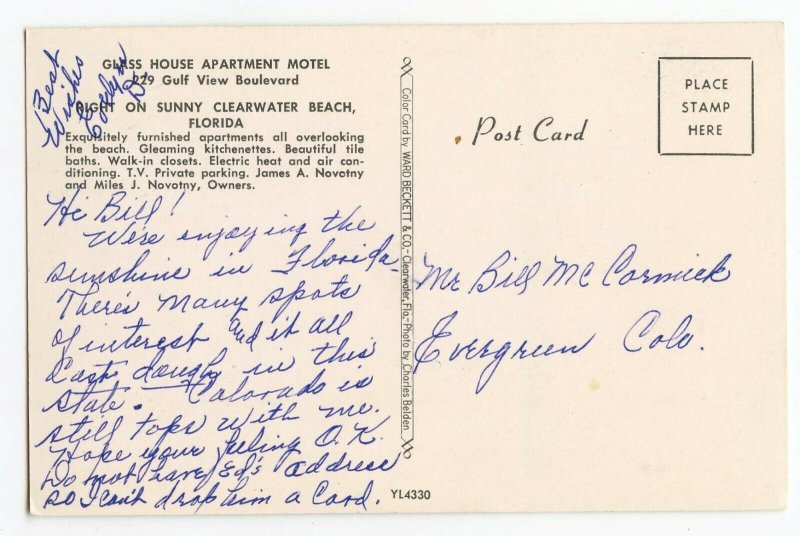 GLASS HOUSE APARTMENT MOTEL
229 Gulf View Boulevard
RIGHT ON SUNNY CLEARWATER BEACH,
FLORIDA
Exquisitely furnished apartments all overlooking
the beach. Gleaming kitchenettes. Beautiful tile
baths. Walk-in closets. Electric heat and air con-
ditioning. T.V. Private parking. James A. Novotny
and Miles J. Novotny, Owners.
Best
Wishes
Hi Bill!
We're enjoying the
sunshine in Florida.
There's many spots
of interest and it all
Cost dough in this
state. Colorado is
still tops with me.
Hope your feeling O.K.
Do not have Ed's address
so I can't drop him a Card.
Color Card by WARD BECKETT & CO.-Clearwater, Fla.-Photo by Charles Belden.
YL4330
Post Card
PLACE
STAMP
HERE
Mr Bill McCormick
Evergreen Colo.